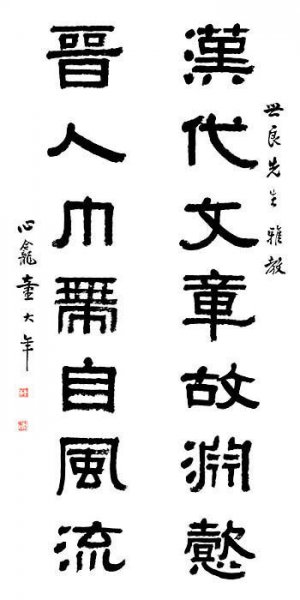 世良先生雅教
漢代文章故淵懿
晉人巾帶自風流
心龕童大年